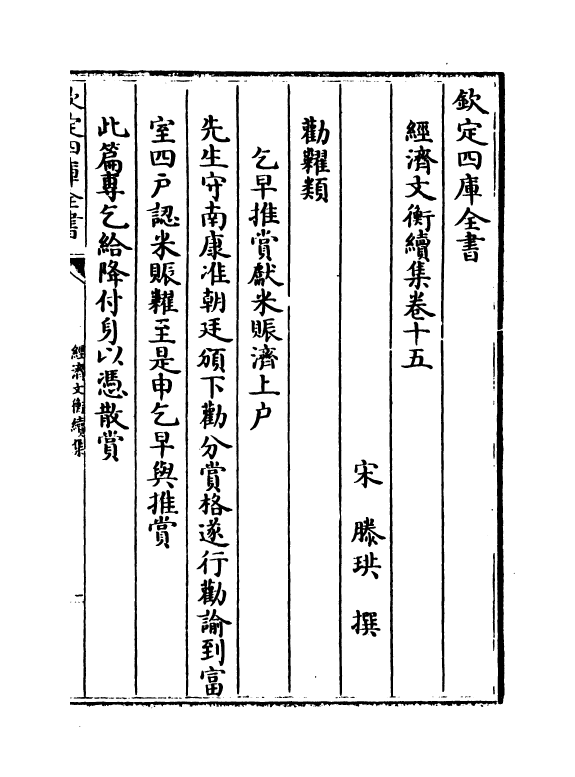 欽定四庫全書
經濟文衡續集卷十五
宋　滕珙　撰
勸糶類
乞早推賞獻米賑濟上户
先生守南康准朝廷頒下勸分賞格遂行勸諭到富
室四户認米賑糶至是申乞早與推賞
此篇專乞給降付身以憑散賞
欽定四庫全書
經濟文衡續集
一